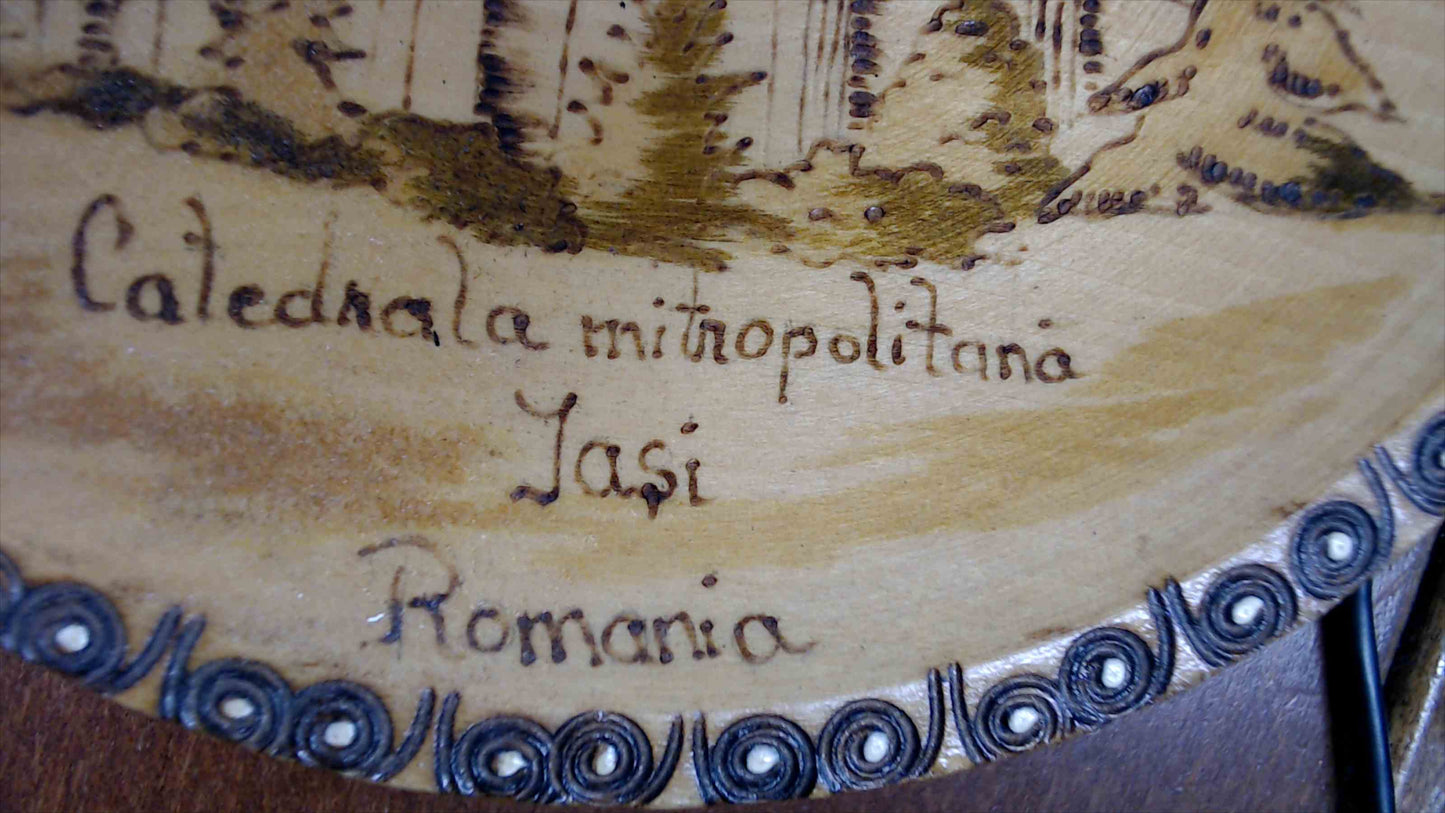 Catedrala mitropolitană
Iaşi
Romania